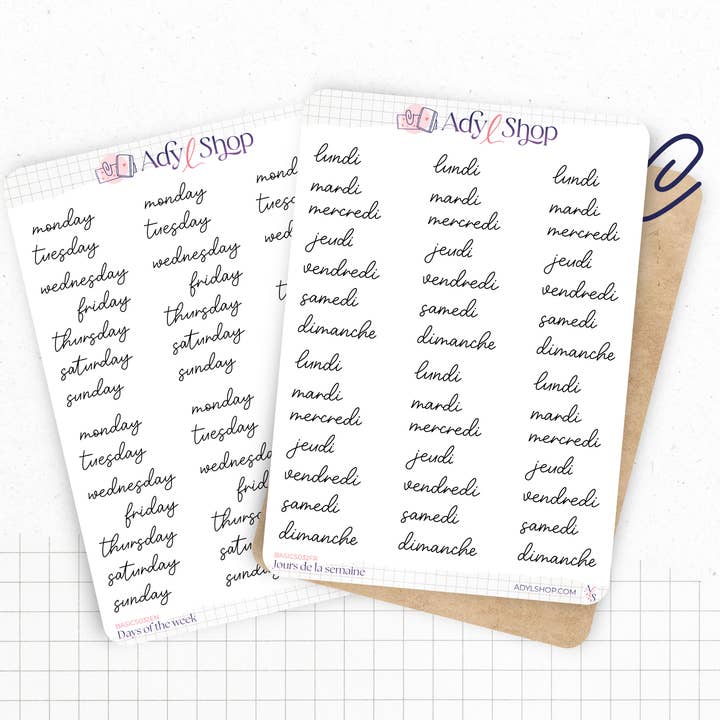 Ady l Shop
monday monday mond
tuesday tuesday tues
wednesday wednesday we
friday friday
thursday thursday t
saturday saturday
sunday sunday
monday monday
tuesday tuesday
wednesday wednesda
friday frid
thursday thurs
saturday satu
sunday sund
BASICS032EN
Days of the week
Ady l Shop
lundi lundi lundi
mardi mardi mardi
mercredi mercredi mercredi
jeudi jeudi jeudi
vendredi vendredi vendredi
samedi samedi samedi
dimanche dimanche dimanche
lundi lundi lundi
mardi mardi mardi
mercredi mercredi mercredi
jeudi jeudi jeudi
vendredi vendredi vendredi
samedi samedi samedi
dimanche dimanche dimanche
BASICS032FR
Jours de la semaine
ADYLSHOP.COM